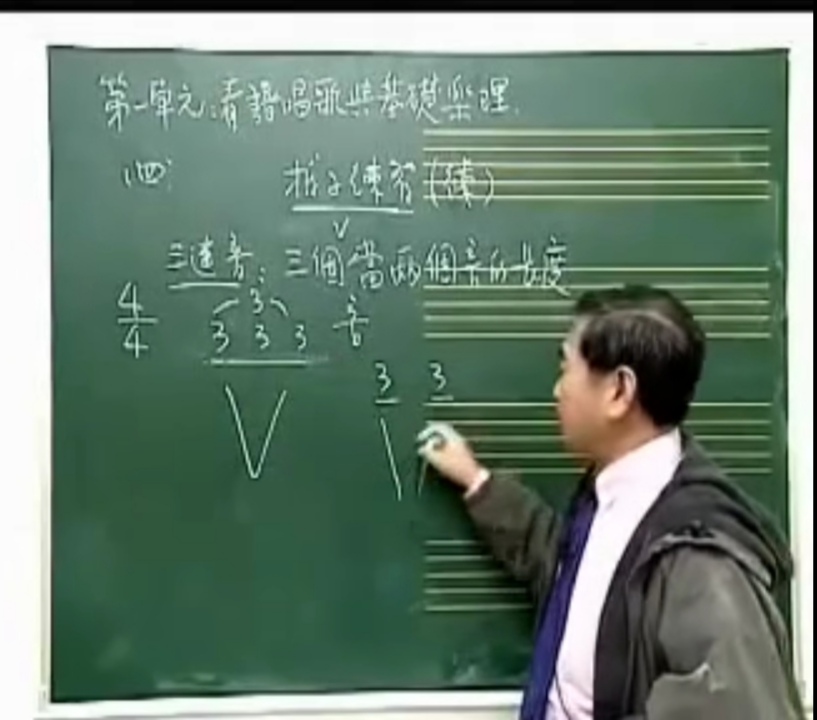 第一單元:看譜唱歌與基礎樂理.
(四) 拍子練習(續)
三連音:三個當兩個音的長度
4 3
4 3 3 3 音
3 3